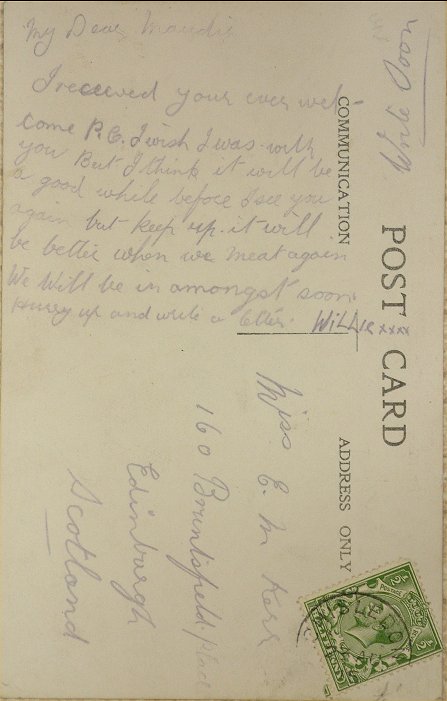 My Dear Maudie
I received your ever wel-
come P.C. I wish I was with
you But I think it will be
a good while before I see you
again but keep up it will
be better when we meat again
We Will be in amongst soon
Hurry up and write a letter. WiLLie xxxx
POST CARD
COMMUNICATION
ADDRESS ONLY
Miss E. M Kerr
160 Bruntsfield Place
Edinburgh
Scotland
½
½